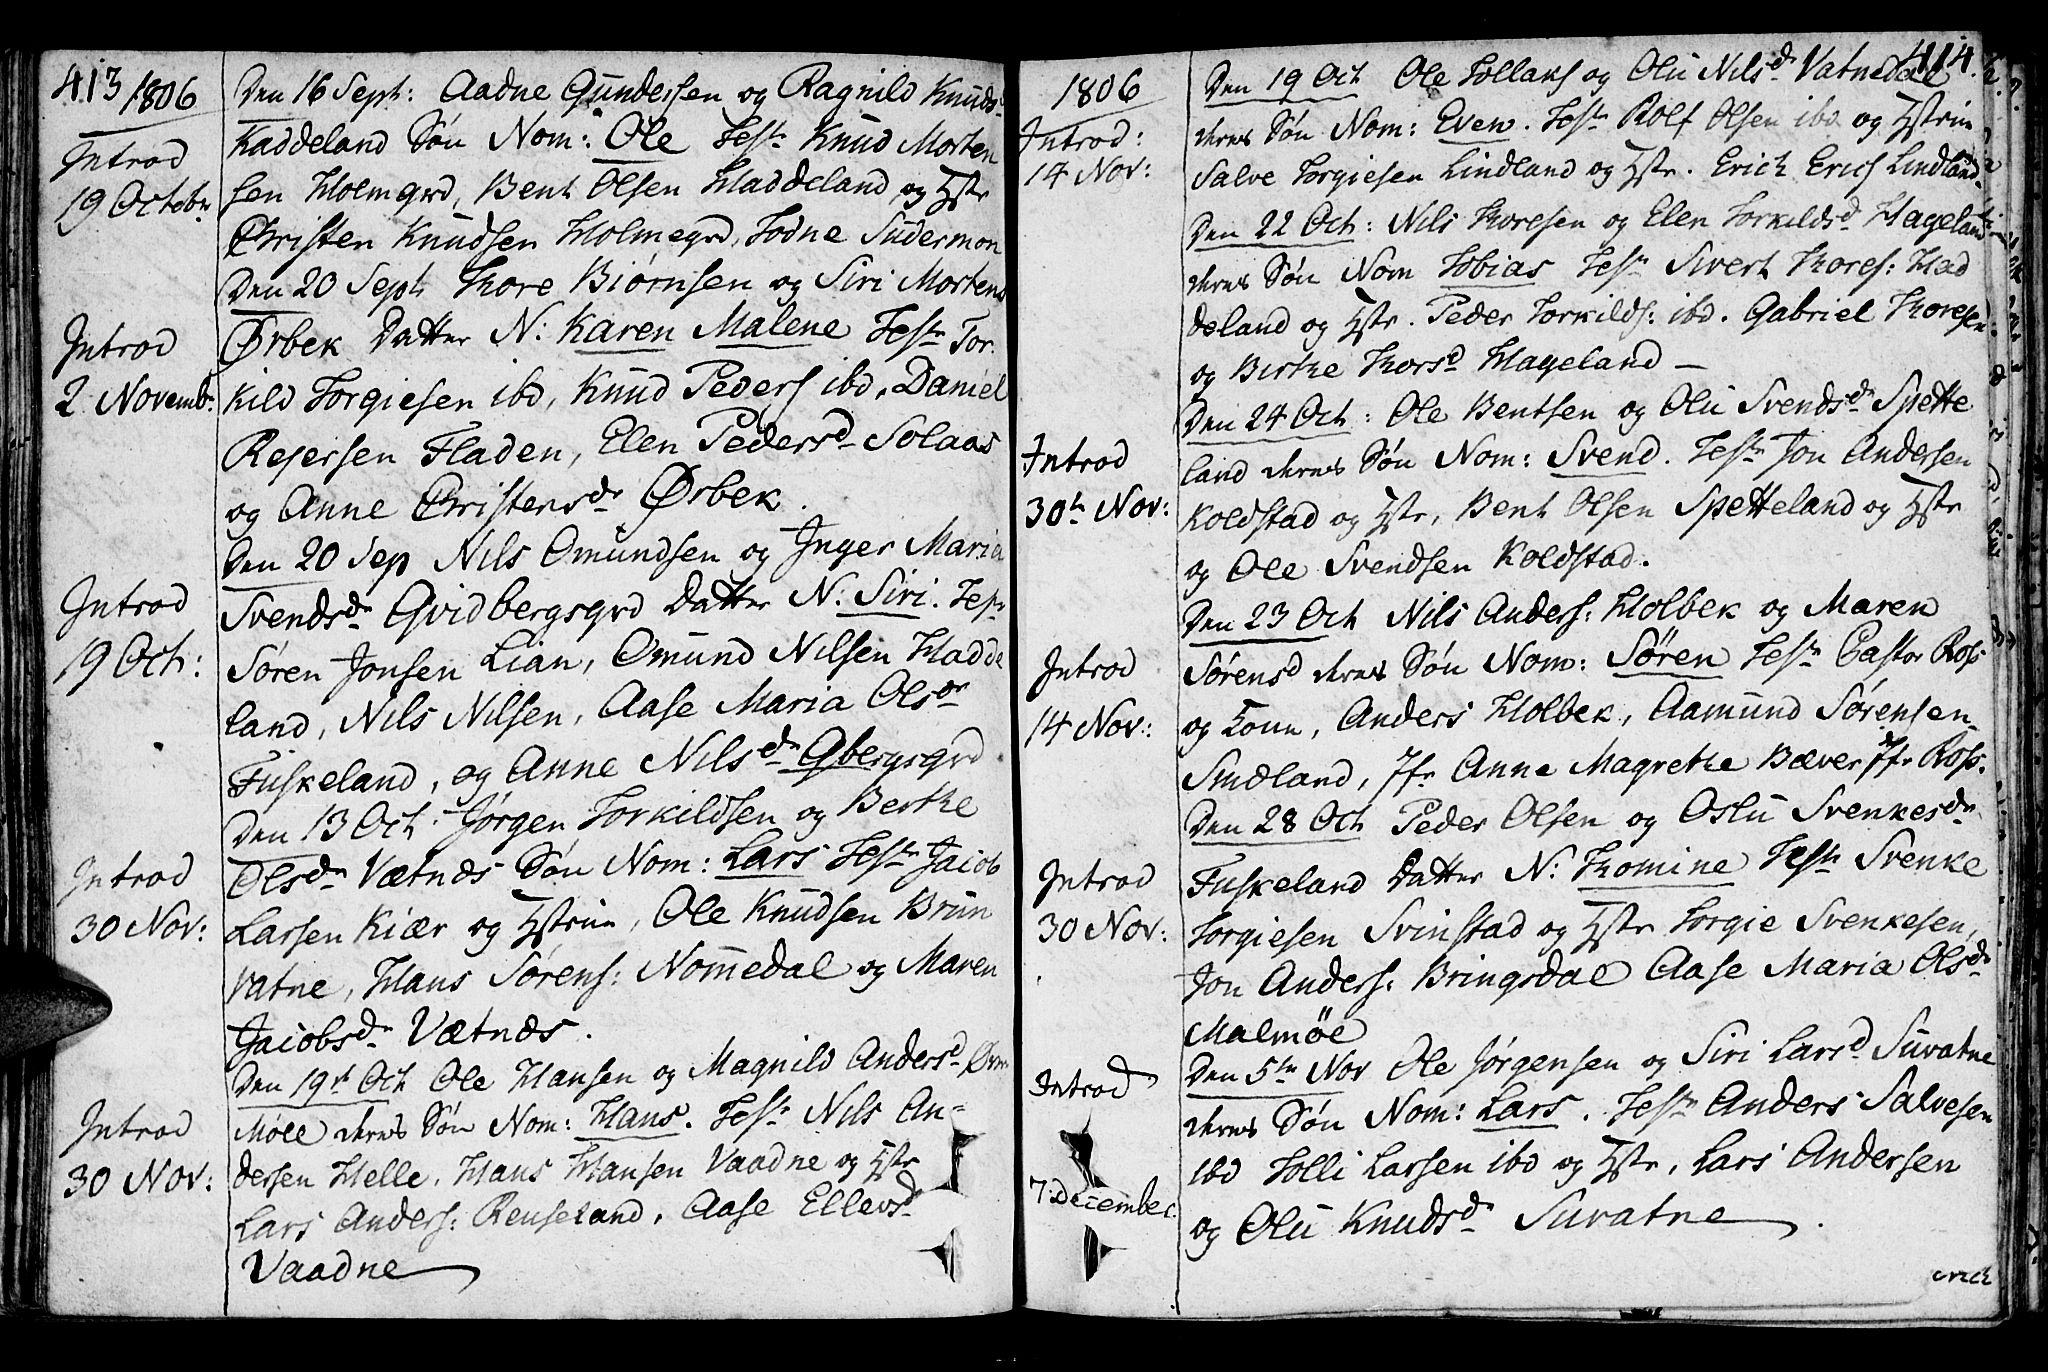 413 1806
Introd
19 Octobr
Introd
2 Novembr
Introd
19 Oct:
Introd
30 Nov:
Introd
30 Nov:
Den 16 Sept: Aadne Gundersen og Ragnild Knuds
Kaddeland Søn Nom: Ole Test Knud Morten
sen Holmegrd, Bent Olsen Haddeland og Hstr
Christen Knudsen Holmegrd, Todne Sudermon
Den 20 Sept Thore Biørnsen og Siri Mortens
Ørbek Datter N: Karen Malene Test Tor
kild Torgiesen ibd, Knud Peders ibd, Daniel
Rejersen Fladen, Elen Pedersd Solaas
og Anne Christensdr Ørbek.
Den 20 Sep Nils Omundsen og Inger Maria
Svendsdr Qvidbergsgrd Datter N: Siri. Test
Søren Jonsen Lian, Omund Nilsen Hadde
land, Nils Nilsen, Aase Maria Olsdr
Fuskeland, og Anne Nilsdr Qbergsgrd
Den 13 Oct: Jørgen Torkildsen og Berthe
Olsdr Vætnes Søn Nom: Lars Test Jacob
Larsen Kiær og Hstrue, Ole Knudsen Brun
vatne, Hans Sørens: Nomedal og Maren
Jacobsdr Vætnes.
Den 19de Oct Ole Hansen og Magnild Andersd Øvre
Møll deres Søn Nom: Hans. Test Nils An-
dersen Helle, Hans Hansen Vaadne og Hstr
Lars Anders: Reuseland, Aase Ellevsd
Vaadne
414.
1806
Introd:
14 Nov:
Introd
30te Nov:
Introd
14 Nov:
Introd
30 Nov:
Introd
7: December
Den 19 Oct Ole Tollans og Olu Nilsdr Vatnedal
deres Søn Nom: Even. Test Rolf Olsen ibd og Hstrue
Salve Torgiesen Lindland og Hstr. Erich Erics Lindland
Den 22 Oct: Nils Thoresen og Elen Torkildsd Hageland
deres Søn Nom Tobias Test Sivert Thores: Had
deland og Hstr. Peder Torkilds: ibd. Gabriel Thoresen
og Birthe Thorsd Hageland —
Den 24 Oct: Ole Bentsen og Olu Svendsdr Spette
land deres Søn Nom: Svend. Test Jon Andersen
Koldstad og Hstr, Bent Olsen Spetteland og Hstr
og Ole Svendsen Koldstad.
Den 23 Oct Nils Anders: Holbek og Maren
Sørensd deres Søn Nom: Søren Test Pastor Ross
og Kone, Anders Holbek, Aamund Sørensen
Smedland, Jfr Anne Magrethe Bæver Jfr Ross.
Den 28 Oct Peder Olsen og Oslu Svenkesdr
Fuskeland Datter N: Thomine Test Svenke
Torgiesen Svinstad og Hstr Torgie Svenkesen,
Jon Anders: Bringsdal Aase Maria Olsdr
Malmøe
Den 5te Nov Ole Jørgensen og Siri Larsd Suvatne
deres Søn Nom: Lars. Test Anders Salvesen
ibd Tolli Larsen ibd og Hstr, Lars Andersen
og Olu Knudsdr Suvatne.